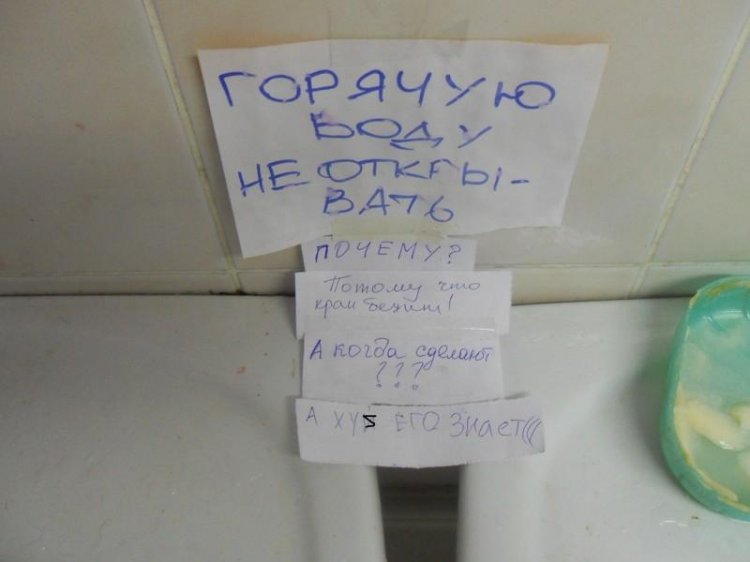 ГОРЯЧУЮ
ВОДУ
НЕ ОТКРЫ-
ВАТЬ
ПОЧЕМУ?
Потому что
кран бежит!
А когда сделают
???
А ХУЙ ЕГО Знает(((